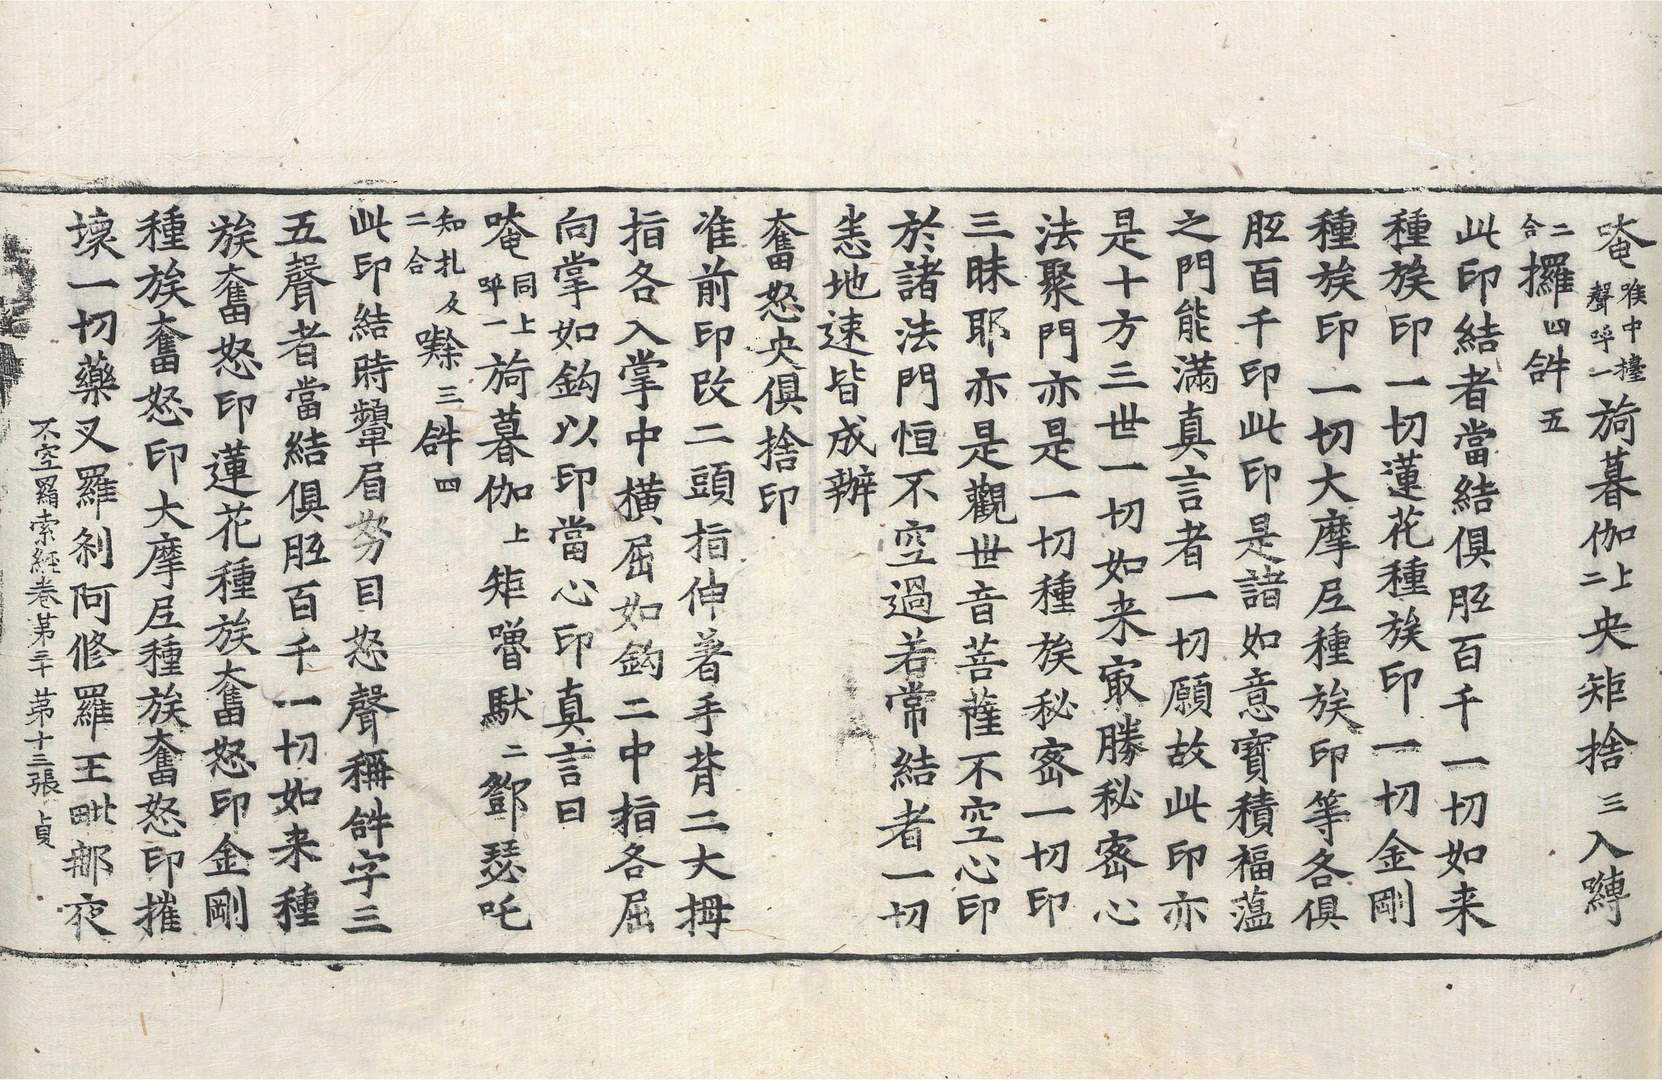 唵喉中擡聲呼一旖暮伽上二央矩捨三入嚩
二合攞四𤙖五
此印結者當結俱胝百千一切如来
種族印一切蓮花種族印一切金剛
種族印一切大摩𡰱種族印等各俱
胝百千印此印是諸如意寶積福蕰
之門能滿真言者一切願故此印亦
是十方三世一切如来㝡勝秘密心
法聚門亦是一切種族秘密一切印
三昧耶亦是觀世音菩薩不空心印
於諸法門恒不空過若常結者一切
悉地速皆成辦
奮怒央俱捨印
准前印改二頭指伸著手背二大拇
指各入掌中横屈如鈎二中指各屈
向掌如鈎以印當心印真言曰
唵同上呼一旖暮伽上矩嚕馱二鄧瑟吒
知礼反二合𠷌三𤙖四
此印結時顰眉努目怒聲稱𤙖字三
五聲者當結俱胝百千一切如来種
族奮怒印蓮花種族奮怒印金剛
種族奮怒印大摩𡰱種族奮怒印摧
壞一切藥叉羅刹阿修羅王毗那夜
不空羂索經卷第三十 第十三張 貞